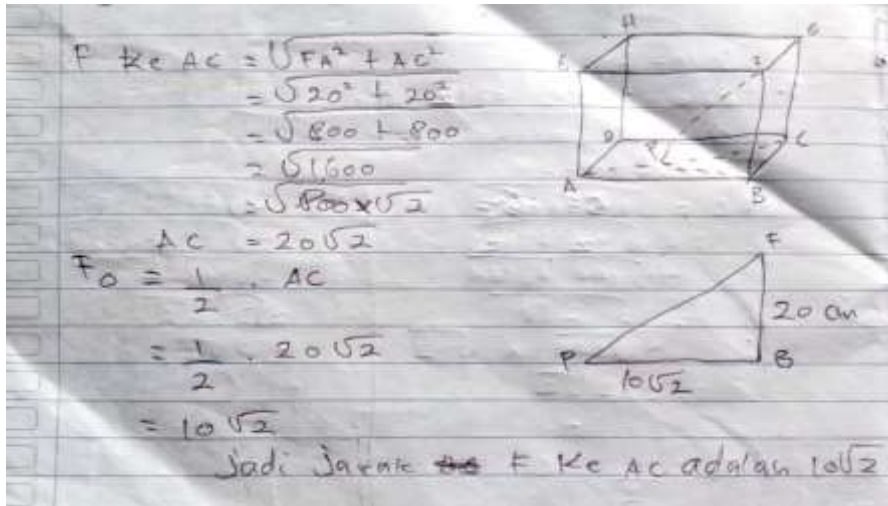 F ke AC = √FA² + AC²
= √20² + 20²
= √800 + 800
= √1600
= √800×√2
AC = 20√2
Fo = 1/2 . AC
= 1/2 . 20√2
= 10√2
Jadi Jarak F ke AC adalah 10√2
H
E
D
C
A
B
F
20 cm
P
B
10√2